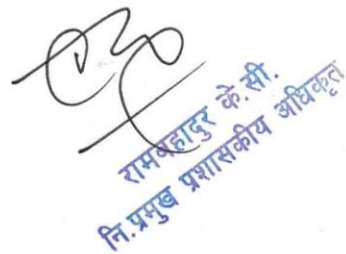 रामबहादुर के.सी.
नि.प्रमुख प्रशासकीय अधिकृत